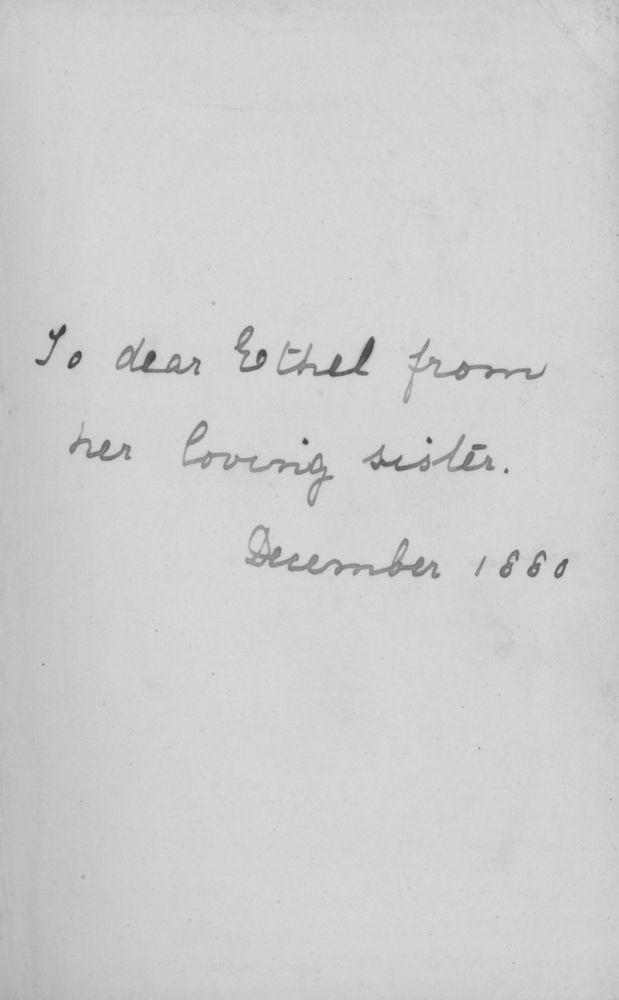 To dear Ethel from
her loving sister.
December 1880